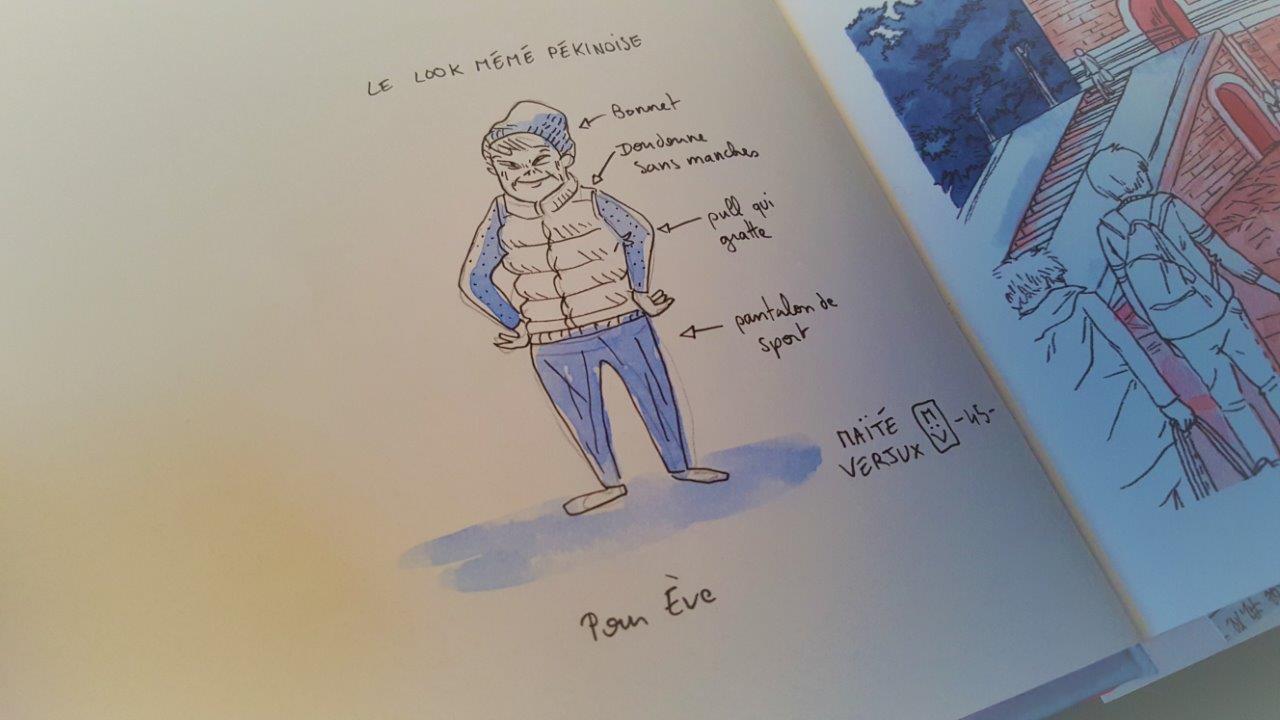 LE LOOK MÉMÉ PÉKINOISE
Bonnet
Doudoune
sans manches
pull qui
gratte
pantalon de
sport
MAÏTÉ
VERJUX
M
-45-
Pour Ève